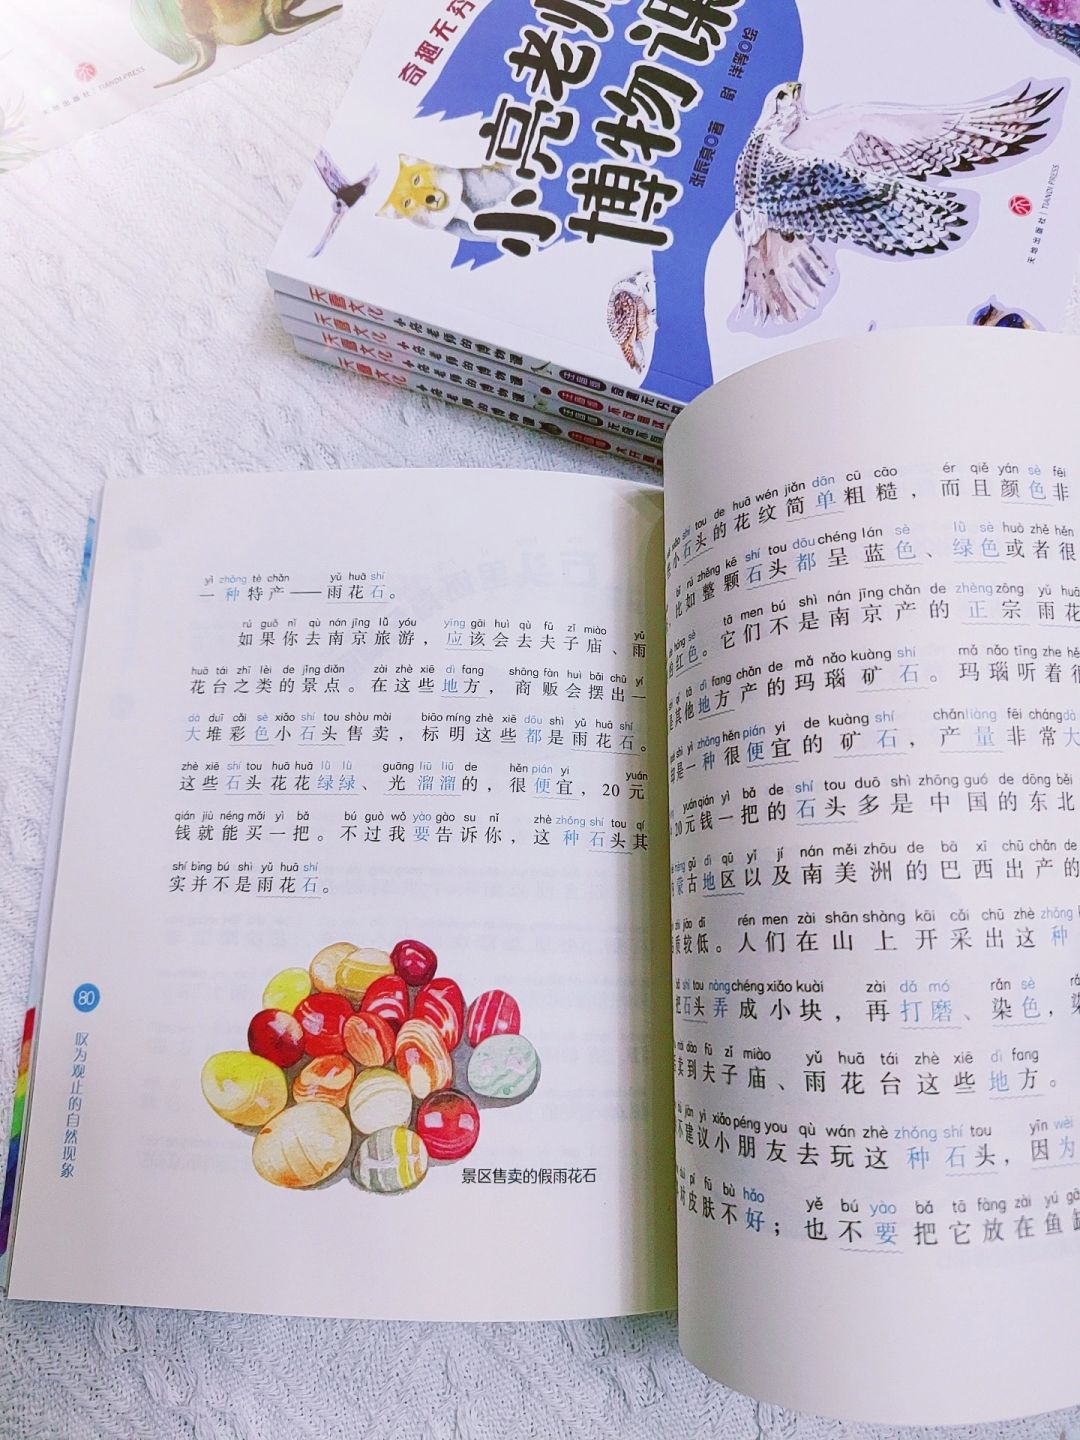 天地出版社 | TIANDI PRESS
奇趣无穷
小亮老师
博物课
张辰亮◎著
尉洋等◎绘
天地出版社 | TIANDI PRESS
天喜文化 小亮老师的博物课 注音版 奇趣无穷
天喜文化 小亮老师的博物课 注音版
天喜文化 小亮老师的博物课 注音版
天喜文化 小亮老师的博物课 注音版 大开
yì zhǒng tè chǎn yǔ huā shí
一种特产——雨花石。
rú guǒ nǐ qù nán jīng lǚ yóu yīng gāi huì qù fū zǐ miào yǔ
如果你去南京旅游，应该会去夫子庙、雨
huā tái zhī lèi de jǐng diǎn zài zhè xiē dì fang shāng fàn huì bǎi chū yí
花台之类的景点。在这些地方，商贩会摆出一
dà duī cǎi sè xiǎo shí tou shòu mài biāo míng zhè xiē dōu shì yǔ huā shí
大堆彩色小石头售卖，标明这些都是雨花石。
zhè xiē shí tou huā huā lǜ lǜ guāng liū liū de hěn pián yi yuán
这些石头花花绿绿、光溜溜的，很便宜，20元
qián jiù néng mǎi yì bǎ bú guò wǒ yào gào su nǐ zhè zhǒng shí tou qí
钱就能买一把。不过我要告诉你，这种石头其
shí bìng bú shì yǔ huā shí
实并不是雨花石。
景区售卖的假雨花石
80
叹为观止的自然现象
xiǎo shí tou de huā wén jiǎn dān cū cāo ér qiě yán sè fēi
小石头的花纹简单粗糙，而且颜色非
bǐ rú zhěng kē shí tou dōu chéng lán sè lǜ sè huò zhě hěn
比如整颗石头都呈蓝色、绿色或者很
de hóng sè tā men bú shì nán jīng chǎn de zhèng zōng yǔ huā
的红色。它们不是南京产的正宗雨花
qí tā dì fang chǎn de mǎ nǎo kuàng shí mǎ nǎo tīng zhe hěn
其他地方产的玛瑙矿石。玛瑙听着很
shì yì zhǒng hěn pián yi de kuàng shí chǎn liàng fēi cháng dà
是一种很便宜的矿石，产量非常大
yuán qián yì bǎ de shí tou duō shì zhōng guó de dōng běi
20元钱一把的石头多是中国的东北
měng gǔ dì qū yǐ jí nán měi zhōu de bā xī chū chǎn de
蒙古地区以及南美洲的巴西出产的
zhì jiào dī rén men zài shān shàng kāi cǎi chū zhè zhǒng
质较低。人们在山上开采出这种
bǎ shí tou nòng chéng xiǎo kuài zài dǎ mó rǎn sè
把石头弄成小块，再打磨、染色，
mài dào fū zǐ miào yǔ huā tái zhè xiē dì fang
卖到夫子庙、雨花台这些地方。
jiàn yì xiǎo péng you qù wán zhè zhǒng shí tou yīn wèi
不建议小朋友去玩这种石头，因为
duì pí fū bù hǎo yě bú yào bǎ tā fàng zài yú gāng
对皮肤不好；也不要把它放在鱼缸